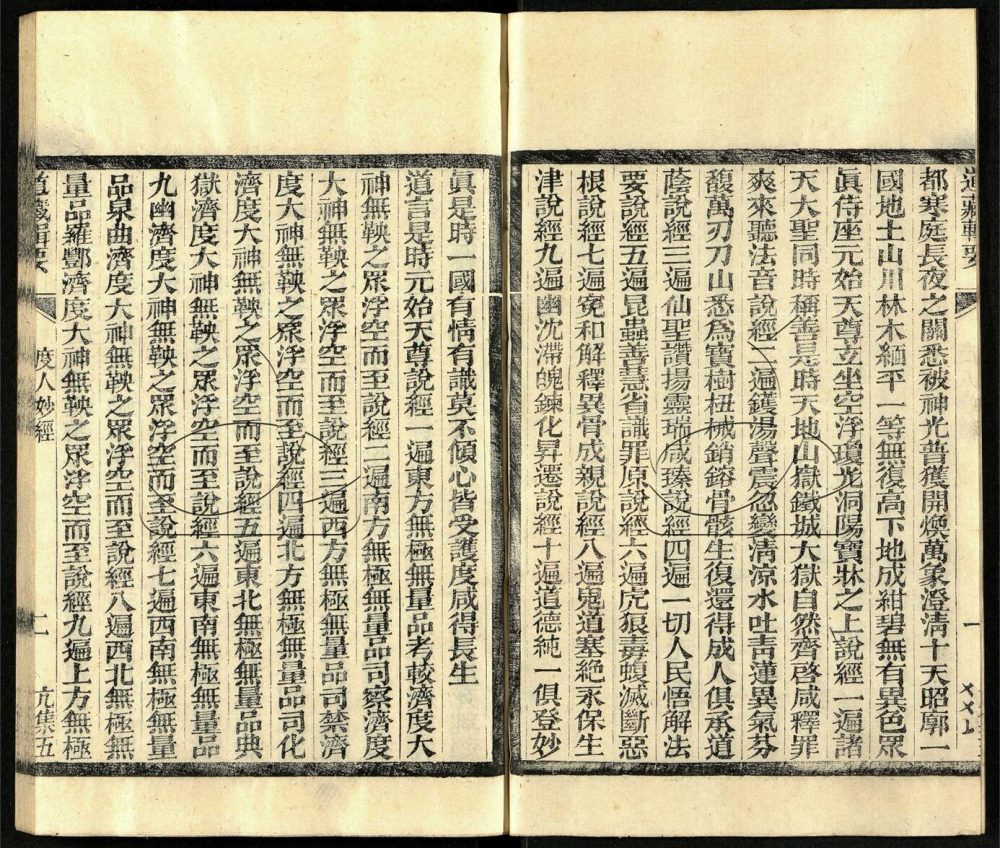 道藏輯要
一
都寒庭長夜之關悉被神光普獲開煥萬象澄清十天昭郭一
國地土山川林木緬平一等無復高下地成紺碧無有異色眾
眞侍座元始天尊立坐空浮瓊光洞陽寶牀之上說經一遍諸
天大聖同時稱善是時天地山嶽鐵城大獄自然齊啓咸釋罪
爽來聽法音說經二遍鑊湯聲震忽變淸凉水吐靑蓮異氣芬
馥萬刃刀山悉為寶樹杻械銷鎔骨骸生復還得成人俱承道
蔭說經三遍仙聖讚揚靈瑞咸臻說經四遍一切人民悟解法
要說經五遍昆蟲善慧省識罪原說經六遍虎狼毒蝮滅斷惡
根說經七遍寃和解釋異骨成親說經八遍鬼道塞絕永保生
津說經九遍幽沈滯魄鍊化昇遷說經十遍道德純一俱登妙
眞是時一國有情有識莫不傾心皆受護度咸得長生
道言是時元始天尊說經一遍東方無極無量品考較濟度大
神無鞅之眾浮空而至說經二遍南方無極無量品司察濟度
大神無鞅之眾浮空而至說經三遍西方無極無量品司禁濟
度大神無鞅之眾浮空而至說經四遍北方無極無量品司化
濟度大神無鞅之眾浮空而至說經五遍東北無極無量品典
獄濟度大神無鞅之眾浮空而至說經六遍東南無極無量品
九幽濟度大神無鞅之眾浮空而至說經七遍西南無極無量
品泉曲濟度大神無鞅之眾浮空而至說經八遍西北無極無
量品羅酆濟度大神無鞅之眾浮空而至說經九遍上方無極
道藏輯要
度人妙經
二
亢集五